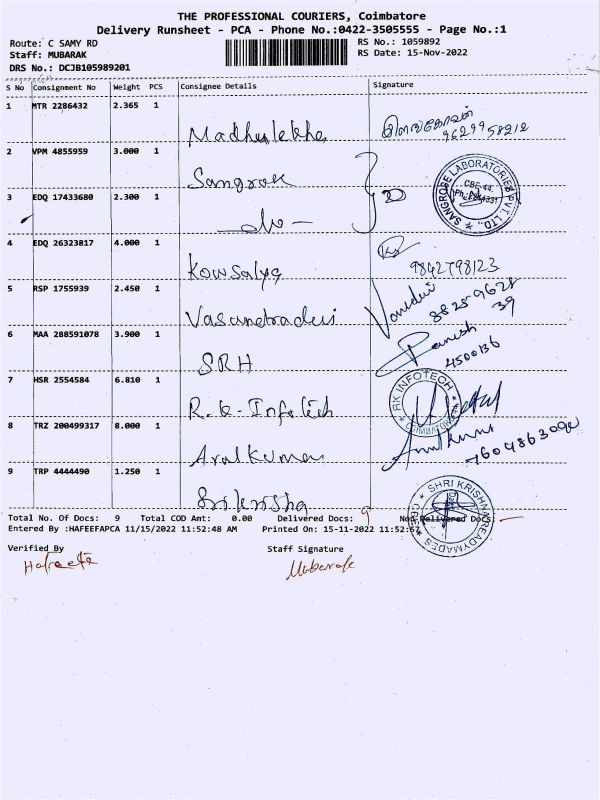 THE PROFESSIONAL COURIERS, Coimbatore
Delivery Runsheet - PCA - Phone No.:0422-3505555 - Page No.:1
Route: C SAMY RD RS No.: 1059892
Staff: MUBARAK RS Date: 15-Nov-2022
DRS No.: DCJB105989201
S No Consignment No Weight PCS Consignee Details Signature
1 MTR 2286432 2.365 1
Madhulekha இளங்கோவன்
9629958212
2 VPM 4855959 3.000 1
Sangrose
SANGROSE LABORATORIES PVT. LTD.,
CBE-44.
3 EDQ 17433680 2.300 1
do -
4 EDQ 26323817 4.000 1
Kowsalya 9842798123
5 RSP 1755939 2.450 1
Vasanetradevi
88259628
39
6 MAA 288591078 3.900 1
SRH Ganesh
4500136
7 HSR 2554584 6.810 1
R.K-Infotech
RK INFOTECH
COIMBATORE
8 TRZ 200499317 8.000 1
Arulkumar
9 TRP 4444490 1.250 1
Srikrisha
SHRI KRISHNA READYMADES
CBE
Total No. Of Docs: 9 Total COD Amt: 0.00 Delivered Docs: 9 Non Delivered Docs: —
Entered By :HAFEEFAPCA 11/15/2022 11:52:48 AM Printed On: 15-11-2022 11:52:57
Verified By Staff Signature
Hafeefa Mubarak